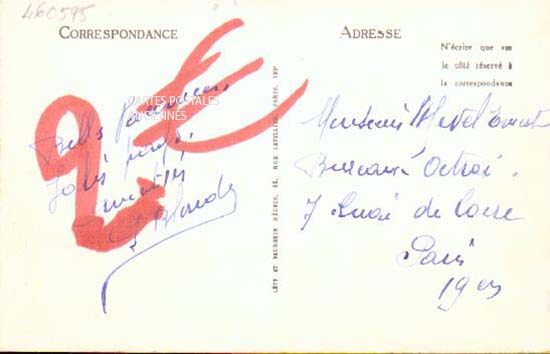 460595
CORRESPONDANCE
ADRESSE
N'écrire que sur
le côté réservé à
la correspondance
CARTES POSTALES
ANCIENNES
2€
Bells
Jolis
amitiés
Monsieur
Bureau Octroi.
7 Quai de Loire
Paris
19 em
LÉVY ET NEURDEIN RÉUNIS, 44, RUE LETELLIER, PARIS, IMP.